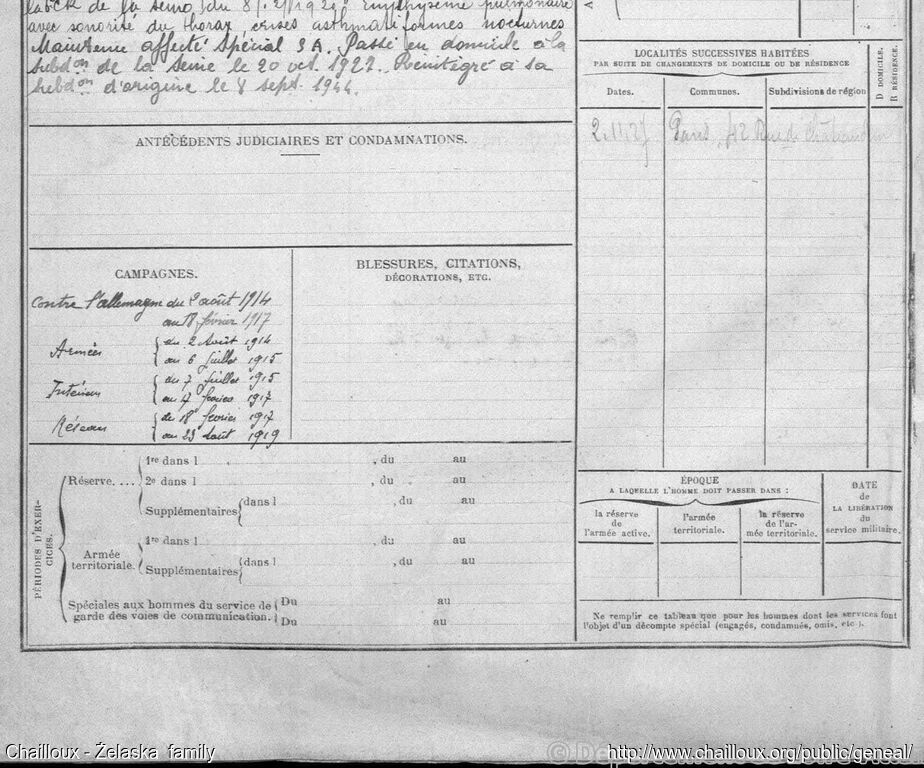 de la Seine du
Emphysème pulmonaire
avec sonorité du thorax, crises asthmatiformes nocturnes
Maintenu affecté Spécial S A. Passé en domicile à la
subdon de la Seine le 20 oct. 1927. Réintégré à sa
subdon d'origine le 8 sept. 1944.
ANTÉCÉDENTS JUDICIAIRES ET CONDAMNATIONS.
CAMPAGNES.
Contre l'allemagne du 2 août 1914
au 18 février 1917
Armées
du 2 Août 1914
au 6 juillet 1915
Intérieur
du 7 juillet 1915
au 17 février 1917
Réseau
du 18 février 1917
au 23 Août 1919
BLESSURES, CITATIONS,
DÉCORATIONS, ETC.
PÉRIODES D'EXER-
CICES.
Réserve....
1re dans l , du au
2e dans l , du au
Supplémentaires dans l , du au
Armée
territoriale.
1re dans l du au
Supplémentaires dans l , du au
Spéciales aux hommes du service de
garde des voies de communication.
Du au
Du au
LOCALITÉS SUCCESSIVES HABITÉES
PAR SUITE DE CHANGEMENTS DE DOMICILE OU DE RÉSIDENCE
Dates. Communes. Subdivisions de région
D DOMICILE.
R RÉSIDENCE.
2.11.27 Paris, 42 Rue de Châteaudun
ÉPOQUE
A LAQUELLE L'HOMME DOIT PASSER DANS :
la réserve
de
l'armée active.
l'armée
territoriale.
la réserve
de l'ar-
mée territoriale.
DATE
de
LA LIBÉRATION
du
service militaire.
Ne remplir ce tableau que pour les hommes dont les services font
l'objet d'un décompte spécial (engagés, condamnés, omis, etc.).
Chailloux - Żelaska family
http://www.chailloux.org/public/geneal/